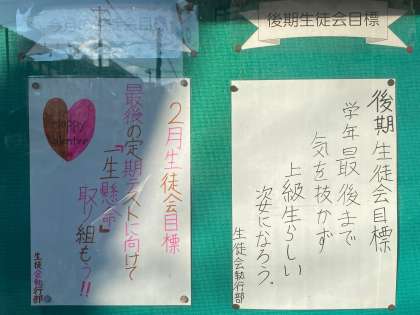 後期生徒会目標
後期生徒会目標
学年最後まで
気を抜かず
上級生らしい
姿になろう.
生徒会執行部
2月生徒会目標
最後の定期テストに向けて
『一生懸命』
取り組もう!!
生徒会執行部
Happy
Valentine